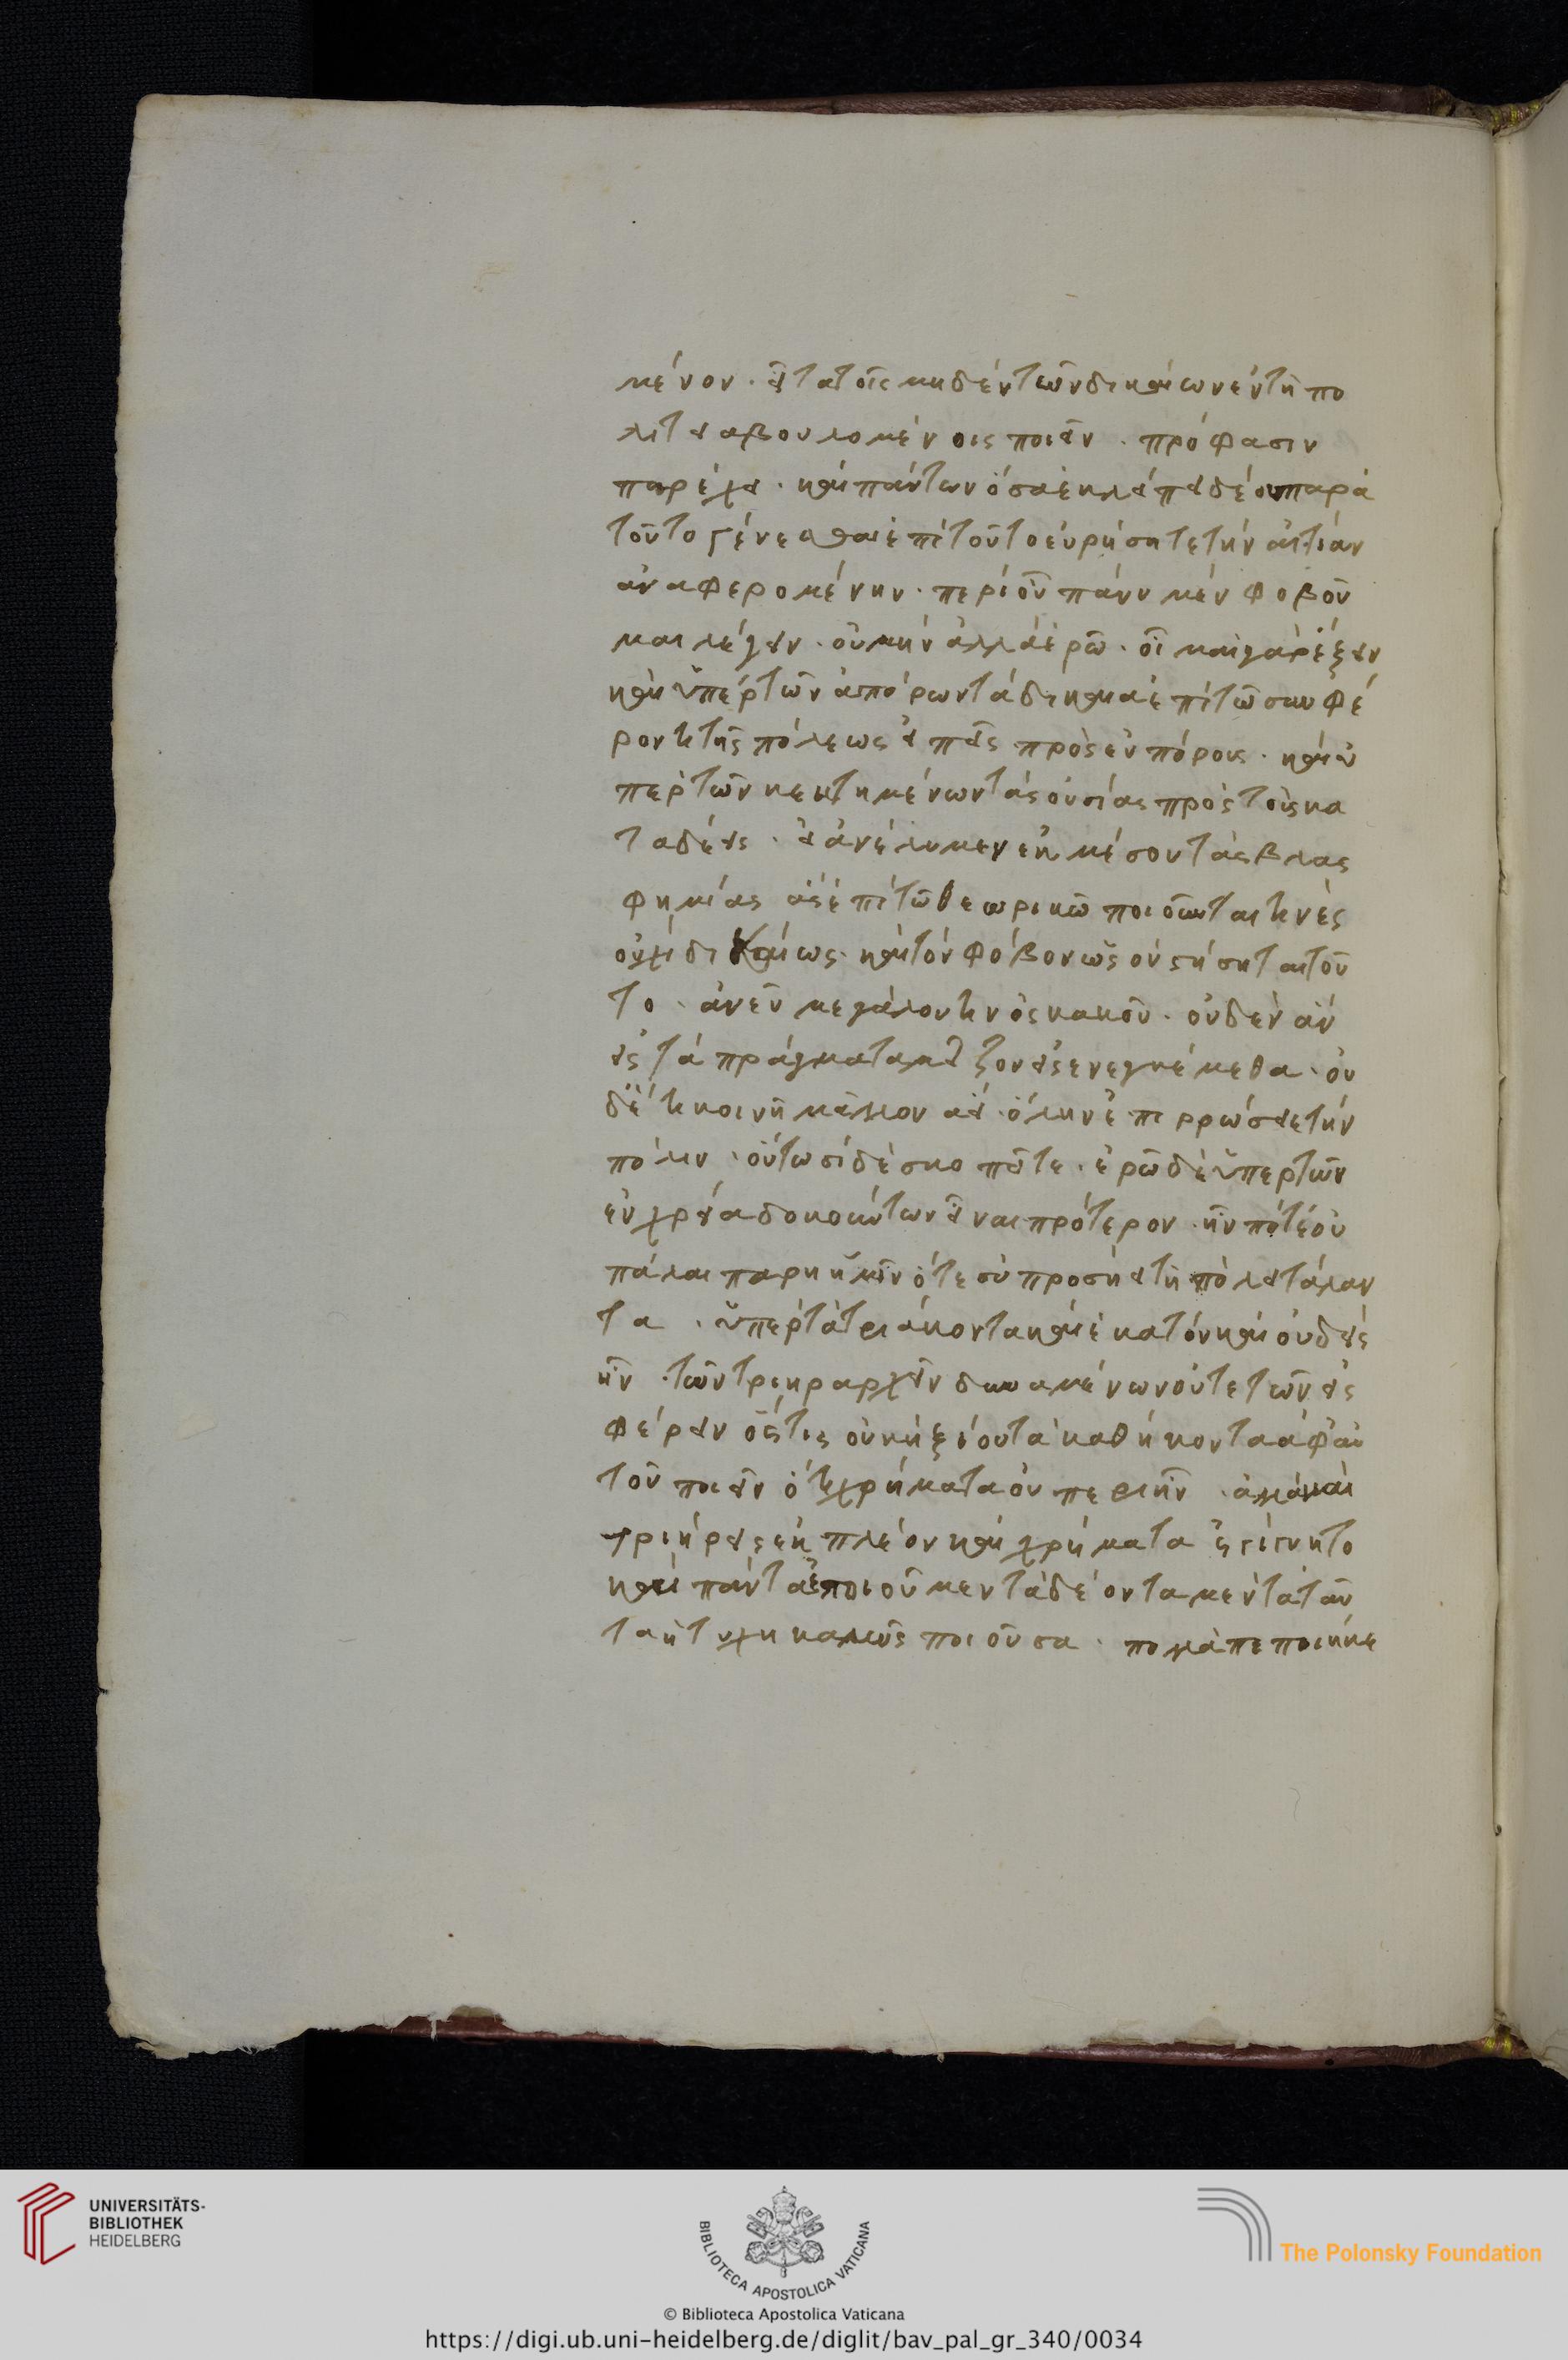 μένον· εἶτα τοῖς μηδὲν τῶν δικαίων ἐν τῆ πο
λιτεία βουλομένοις ποιεῖν· πρόφασιν
παρέχει· καὶ πάντων ὅσα ἐκλείπει δέον παρὰ
τοῦτο γένεσθαι ἐπὶ τοῦτο εὑρήσητε τὴν αἰτίαν
ἀναφερομένην· περὶ οὗ πάνυ μὲν φοβοῦ
μαι λέγειν· οὐ μὴν ἀλλὰ ἐρῶ· οἶμαι γὰρ ἕξειν
καὶ ὑπὲρ τῶν ἀπόρων τὰ δίκαια ἐπὶ τῶ συμφέ
ροντι τῆς πόλεως εἰπεῖς πρὸς εὐπόρους· καὶ ὑ
πὲρ τῶν κεκτημένων τὰς οὐσίας πρὸς τοὺς κα
ταδεεῖς· εἰ ἀνέλυμεν ἐκ μέσου τὰς βλας
φημίας ἃς ἐπὶ τῶ θεωρικῶ ποιοῦνται τινὲς
οὐχὶ δικαίως· καὶ τὸν φόβον ὡς οὐ στήσηται τοῦ
το· ἄνευ μεγάλου τινὸς κακοῦ· οὐδὲν ἂν
εἰς τὰ πράγματα μεῖζον εἰσενεγκέμεθα· οὐ
δέ τι κοινῆ μᾶλλον ἀεὶ ὅλην ἐπιρρώσειε τὴν
πόλιν· οὑτωσὶ δὲ σκοπεῖτε· ἐρῶ δὲ ὑπὲρ τῶν
ἐν χρεία δοκούντων εἶναι πρότερον· ἦν ποτέ οὐ
πάλαι παρ' ἡμῖν ὅτε οὐ προσήει τῆ πόλει τάλαν
τα· ὑπὲρ τὰ τριάκοντα καὶ ἑκατὸν καὶ οὐδεὶς
ἦν· τῶν τριηραρχεῖν δυναμένων οὔτε τῶν εἰς
φέρειν ὅστις οὐκ ἠξίου τὰ καθήκοντα ἀφ' αὑ
τοῦ ποιεῖν ὅτι χρήματα οὐ περιῆν· ἀλλὰ καὶ
τριήρεις ἐκ πλέον καὶ χρήματα ἐγίγνητο
καὶ πάντα ἐποιοῦμεν τὰ δέοντα μετὰ ταῦ
τα ἡ τύχη καλῶς ποιοῦσα· πολλὰ πεποίηκε
UNIVERSITÄTS-
BIBLIOTHEK
HEIDELBERG
BIBLIOTECA APOSTOLICA VATICANA
The Polonsky Foundation
© Biblioteca Apostolica Vaticana
https://digi.ub.uni-heidelberg.de/diglit/bav_pal_gr_340/0034